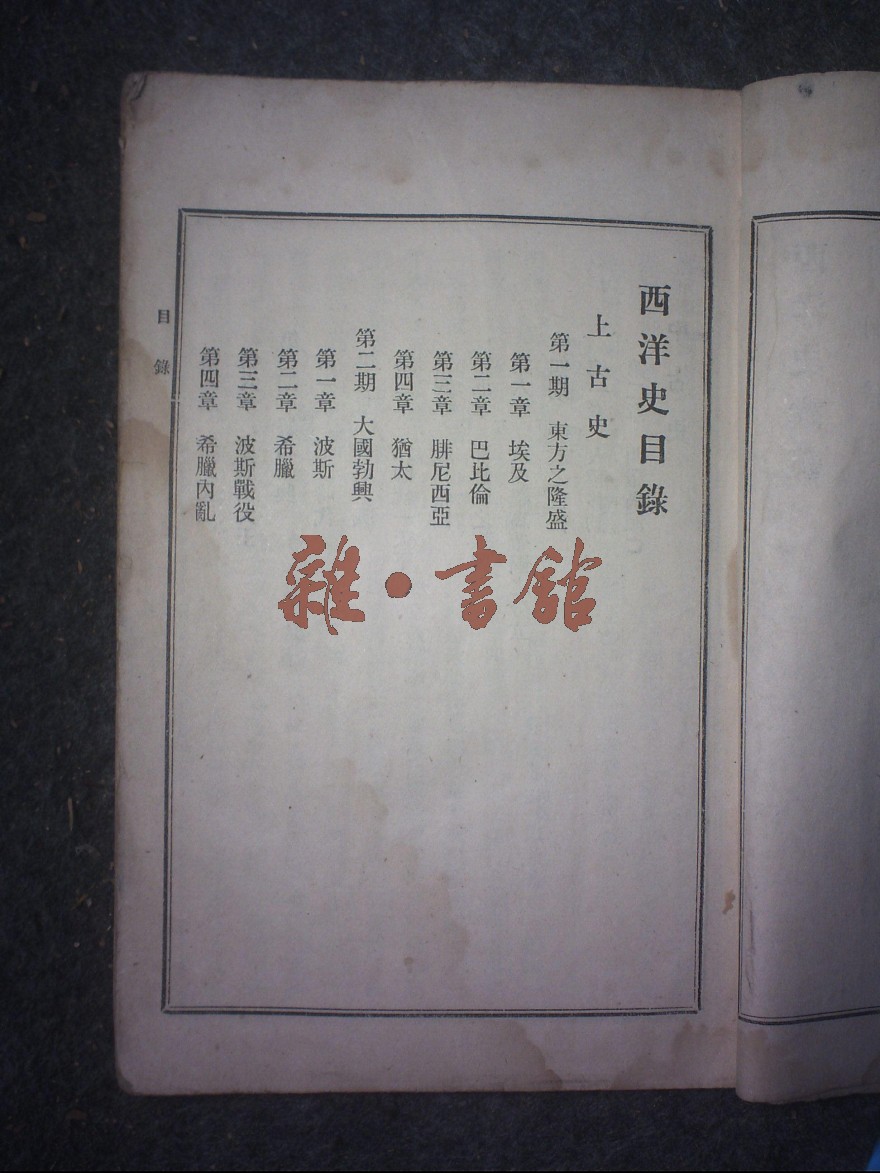 西洋史目錄
上古史
第一期 東方之隆盛
第一章 埃及
第二章 巴比倫
第三章 腓尼西亞
第四章 猶太
第二期 大國勃興
第一章 波斯
第二章 希臘
第三章 波斯戰役
第四章 希臘內亂
目錄
雜·書館